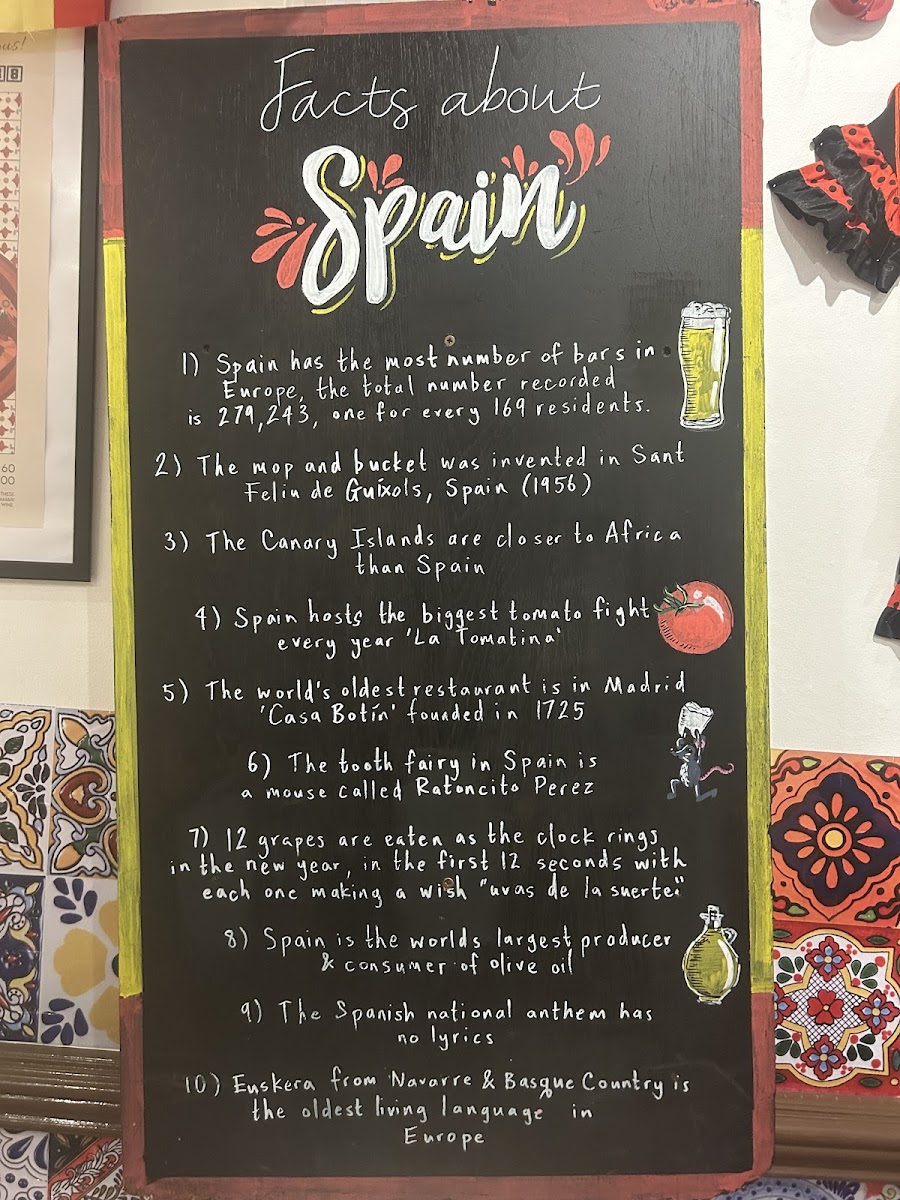 Facts about
Spain
1) Spain has the most number of bars in
Europe, the total number recorded
is 279,243, one for every 169 residents.
2) The mop and bucket was invented in Sant
Feliu de Guíxols, Spain (1956)
3) The Canary Islands are closer to Africa
than Spain
4) Spain hosts the biggest tomato fight
every year 'La Tomatina'
5) The world's oldest restaurant is in Madrid
'Casa Botín' founded in 1725
6) The tooth fairy in Spain is
a mouse called Ratoncito Perez
7) 12 grapes are eaten as the clock rings
in the new year, in the first 12 seconds with
each one making a wish "uvas de la suerte."
8) Spain is the worlds largest producer
& consumer of olive oil
9) The Spanish national anthem has
no lyrics
10) Euskera from Navarre & Basque Country is
the oldest living language in
Europe